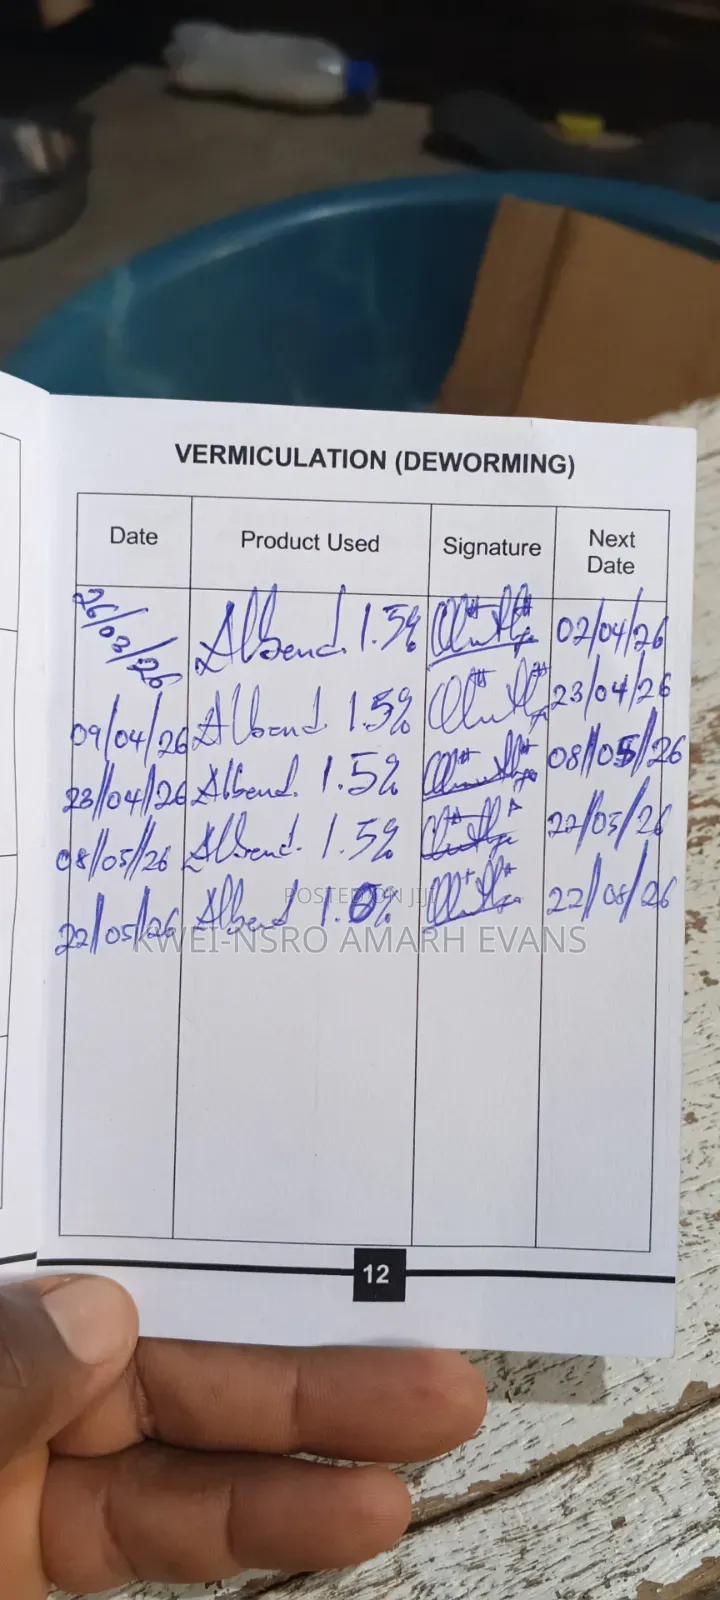 VERMICULATION (DEWORMING)
Date Product Used Signature Next Date
26/03/26 Albend. 1.5% 02/04/26
09/04/26 Albend. 1.5% 23/04/26
23/04/26 Albend. 1.5% 08/05/26
08/05/26 Albend. 1.5% 22/05/26
22/05/26 Albend 1.0% 22/08/26
POSTED ON JIJI
KWEI-NSRO AMARH EVANS
12